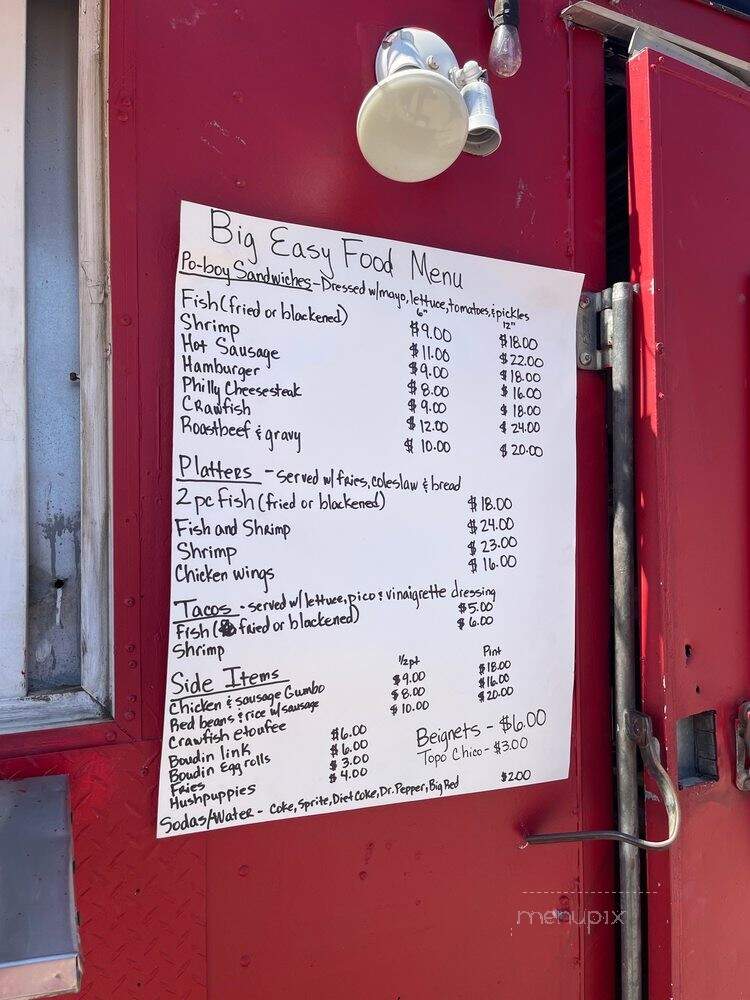 Big Easy Food Menu
Po-boy Sandwiches - Dressed w/mayo, lettuce, tomatoes, & pickles
6" 12"
Fish (fried or blackened) $9.00 $18.00
Shrimp $11.00 $22.00
Hot Sausage $9.00 $18.00
Hamburger $8.00 $16.00
Philly Cheesesteak $9.00 $18.00
Crawfish $12.00 $24.00
Roastbeef & gravy $10.00 $20.00
Platters - served w/ fries, coleslaw & bread
2 pc fish (fried or blackened) $18.00
Fish and Shrimp $24.00
Shrimp $23.00
Chicken wings $16.00
Tacos - served w/ lettuce, pico & vinaigrette dressing
Fish (fried or blackened) $5.00
Shrimp $6.00
Side Items 1/2 pt Pint
Chicken & sausage Gumbo $9.00 $18.00
Red beans & rice w/ sausage $8.00 $16.00
Crawfish etoufee $10.00 $20.00
Boudin link $6.00
Boudin Eggrolls $6.00
Fries $3.00
Hushpuppies $4.00
Beignets - $6.00
Topo Chico - $3.00
Sodas/Water - Coke, Sprite, Diet Coke, Dr. Pepper, Big Red $2.00
menupix